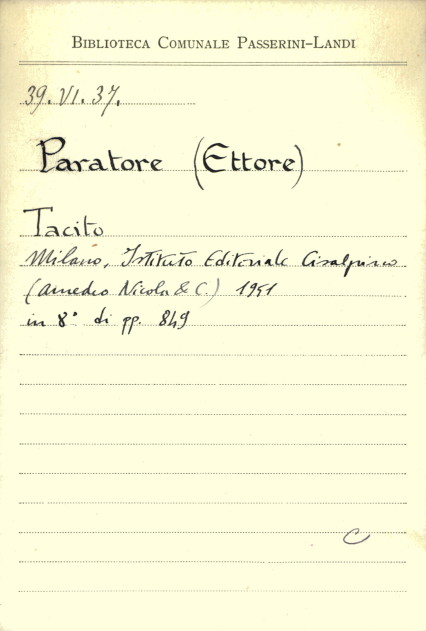 BIBLIOTECA COMUNALE PASSERINI-LANDI
39. VI. 37.
Paratore (Ettore)
Tacito
Milano, Istituto Editoriale Cisalpino
(Amedeo Nicola & C.) 1951
in 8° di pp. 849
C